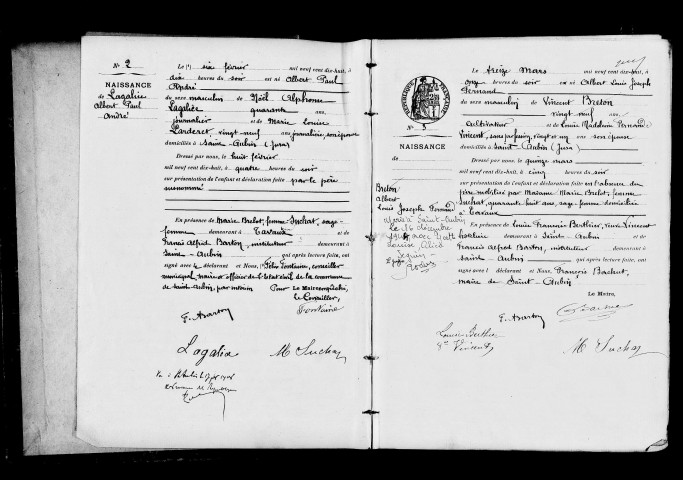 N° 2
NAISSANCE
de Lagalice
Albert Paul
André
Le (1) six février mil neuf cent dix-huit, à
dix heures du soir est né Albert Paul
André
du sexe masculin de Noël Alphonse
Lagalice quarante ans,
journalier et de Marie Louise
Larderet, vingt neuf ans journalière, son épouse
domiciliés à Saint-Aubin (Jura)
Dressé par nous, le huit février
mil neuf cent dix-huit, à quatre heures du soir
sur présentation de l'enfant et déclaration faite par le père
susnommé
En présence de Marie Brelot, femme Suchat, sage-
femme demeurant à Tavaux et de
Francis Alfred Barton, instituteur demeurant à
Saint-Aubin qui après lecture faite, ont
signé avec le déclarant et Nous, Félix Fontaine, conseiller
municipal, officier de l'état civil de la commune
de Saint-Aubin, par intérim Pour le Maire empêché,
Le Conseiller,
Fontaine
F. Barton
Lagalice
M Suchat
N° 3
NAISSANCE
de
Breton
Albert
Louis Joseph Fernand
Marié à Saint-Aubin
Le 16 décembre
avec
Louise Alice
Le treize Mars mil neuf cent dix-huit, à
onze heures du soir est né Albert Louis Joseph
Fernand
du sexe masculin de Vincent Breton
vingt neuf ans,
cultivateur et de Louise Madeleine Fernande
Vincent, sans profession, vingt et un ans son épouse
domiciliés à Saint-Aubin (Jura)
Dressé par nous, le quinze mars
mil neuf cent dix-huit, à cinq heures du soir
sur présentation de l'enfant et déclaration faite en l'absence du
père mobilisé par Madame Marie Brelot, femme
Suchat, quarante huit ans, sage-femme domiciliée
à Tavaux
En présence de Louise François Berthier, veuve Vincent
demeurant à Saint-Aubin et de
Francis Alfred Barton, instituteur demeurant à
Saint-Aubin qui après lecture faite, ont
signé avec la déclarant et Nous, François Bachut,
maire de Saint-Aubin
Le Maire,
F. Barton
Louise Berthier
Vve Vincent
M Suchat